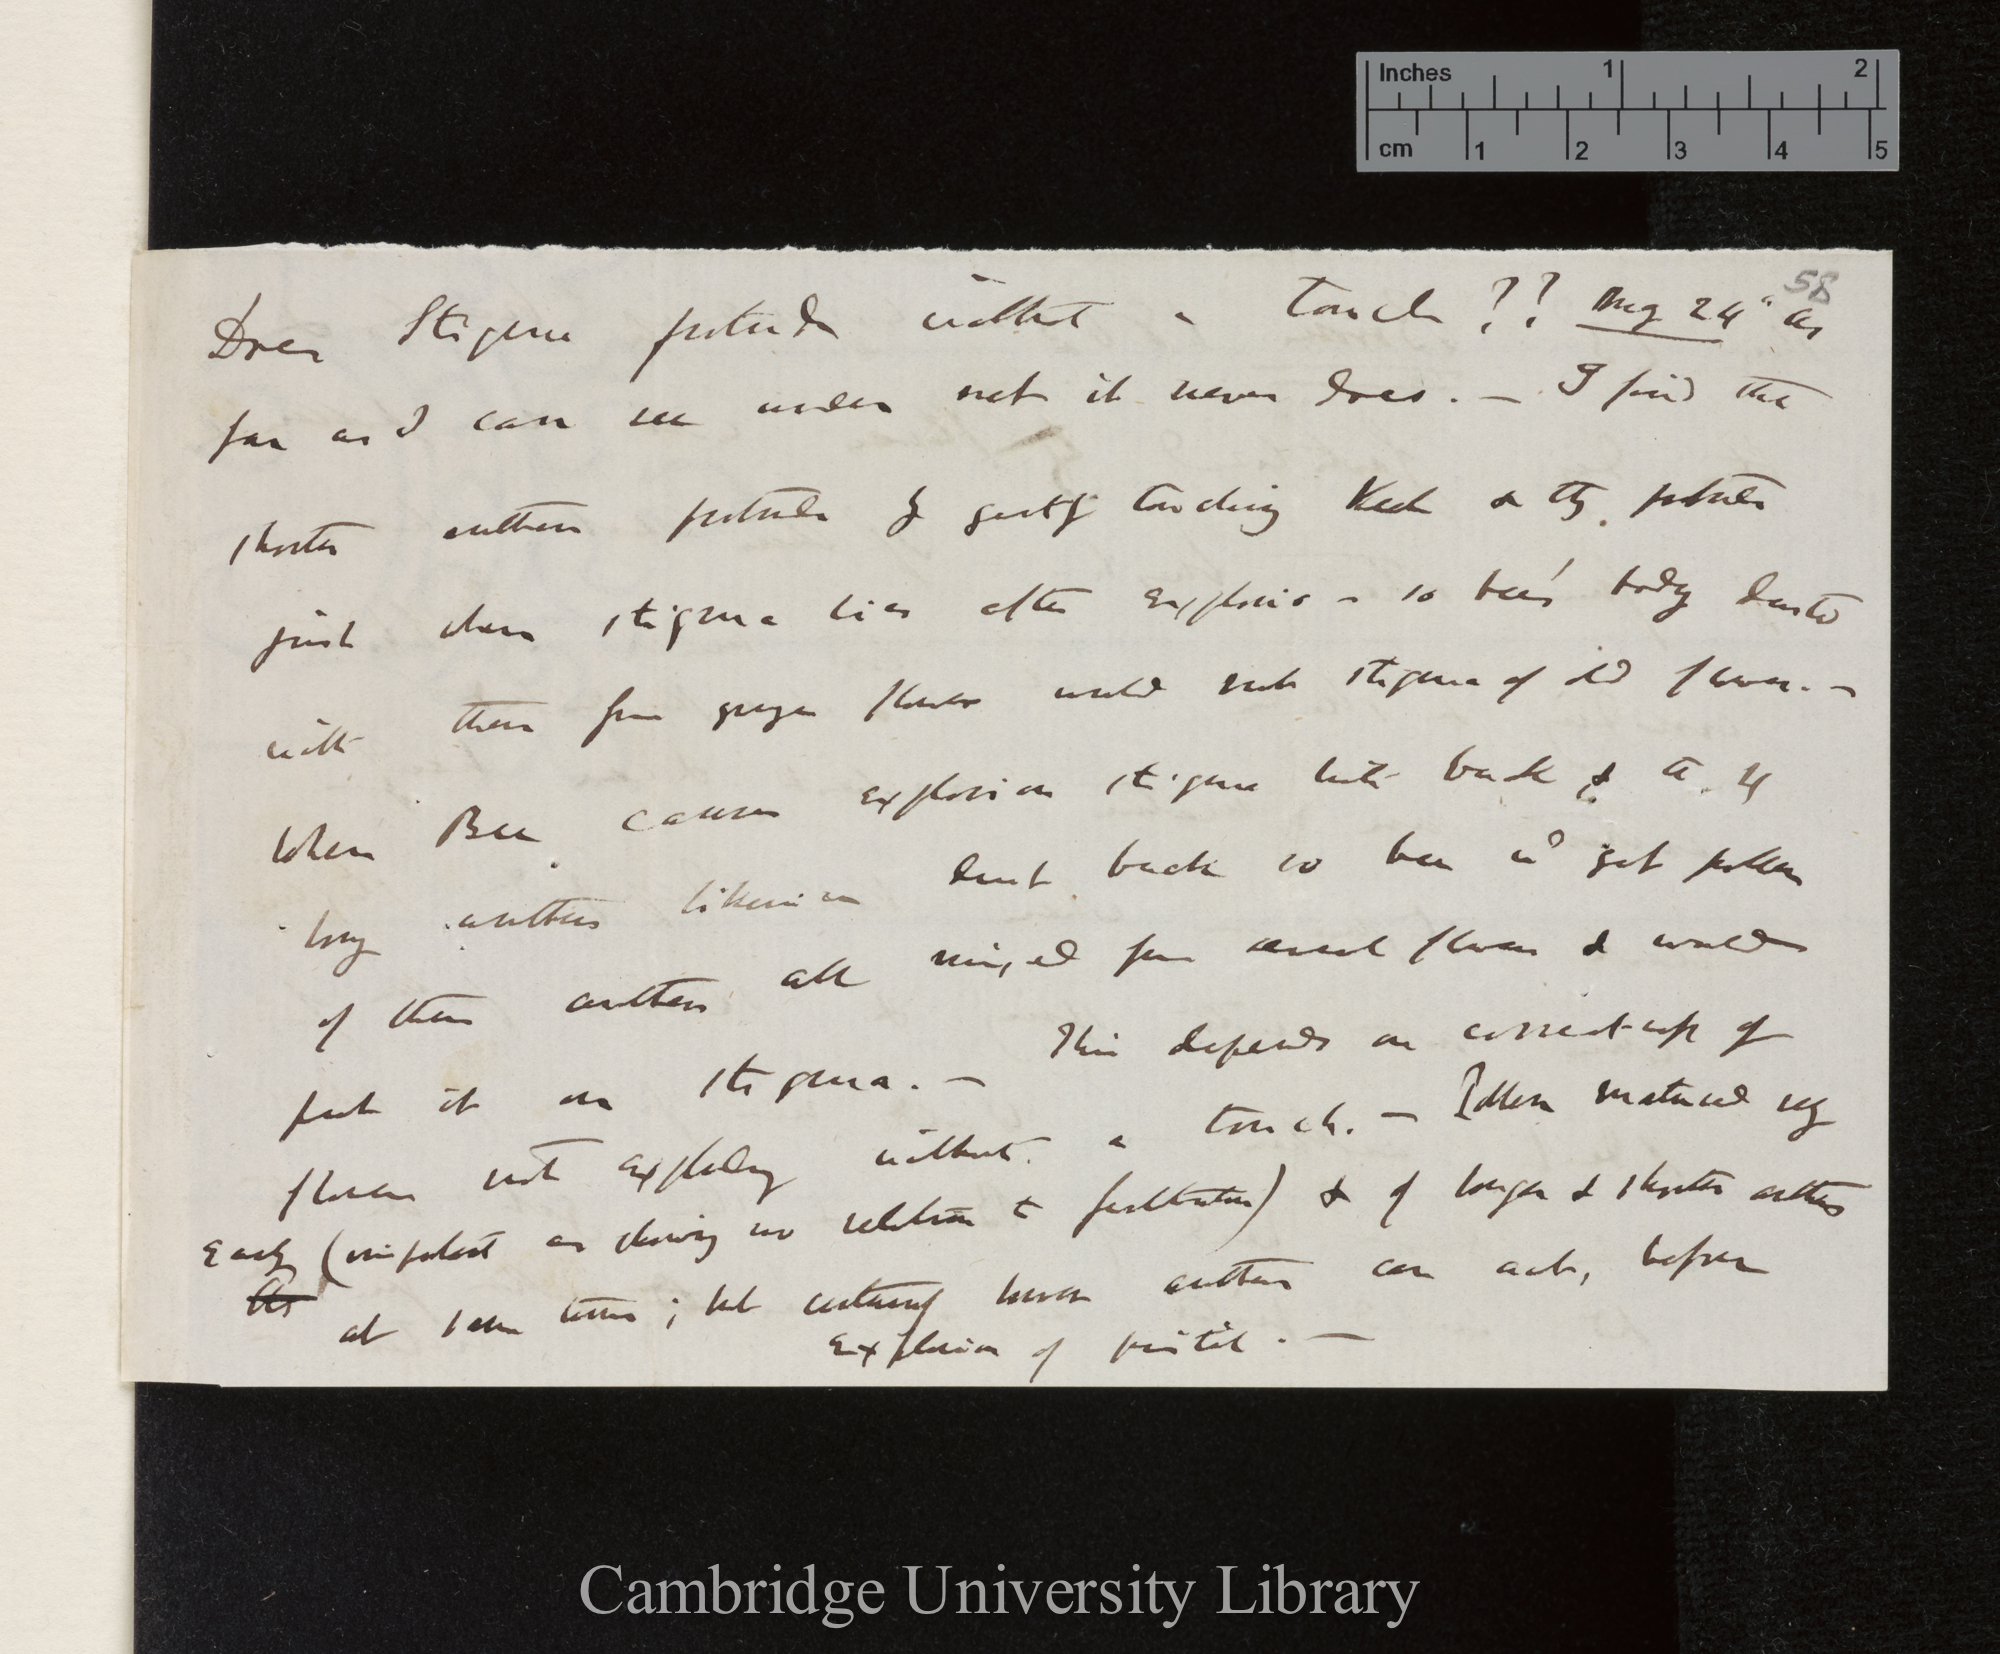 Inches 1 2
cm 1 2 3 4 5
58
Does Stigma protrude without a touch?? Aug 24" As
far as I can see under net it never does. — I find the
shorter anthers protrude by gently touching Keel & they protrude
just where stigma lies after explosion — so bee's body dusted
with them from younger flowers would rub stigma of old flower. —
When Bee causes explosion stigma hits back &
long anthers likewise dust back so bee wd get pollen
of these anthers all mixed from several flowers & would
put it on stigma. — This depends on correctness of
flower not exploding without a touch. — Pollen matured very
early (important as showing no relation to fertilisation) & of longer & shorter anthers
As
at same time; but certainly lower anthers can act, before
explosion of pistil. —
Cambridge University Library